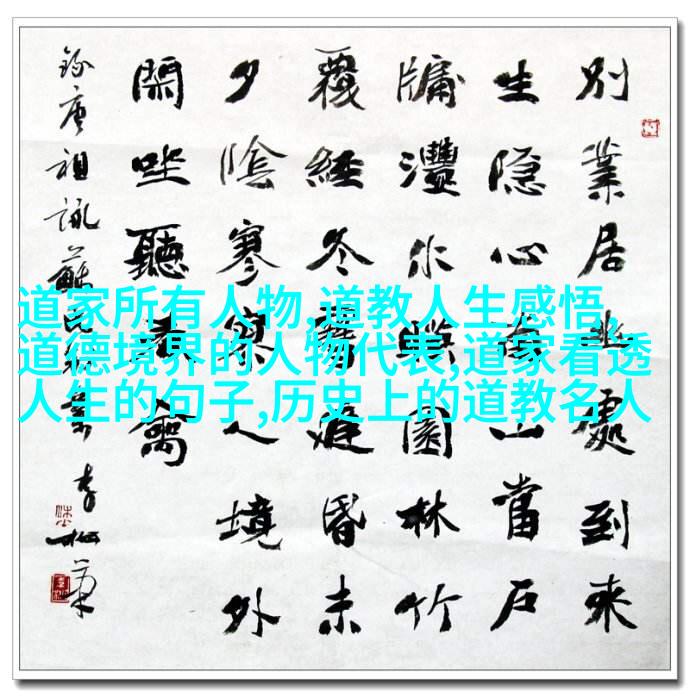 道家所有人物,道教人生感悟,
道德境界的人物代表,道家看透
人生的句子,历史上的道教名人
別業居幽處到來
生隐心南山當戶
牖灃水映園林竹
覆經冬雪庭昏未
夕陰寥寥人境外
閑坐聽春禽
錄唐祖詠蘇氏別業